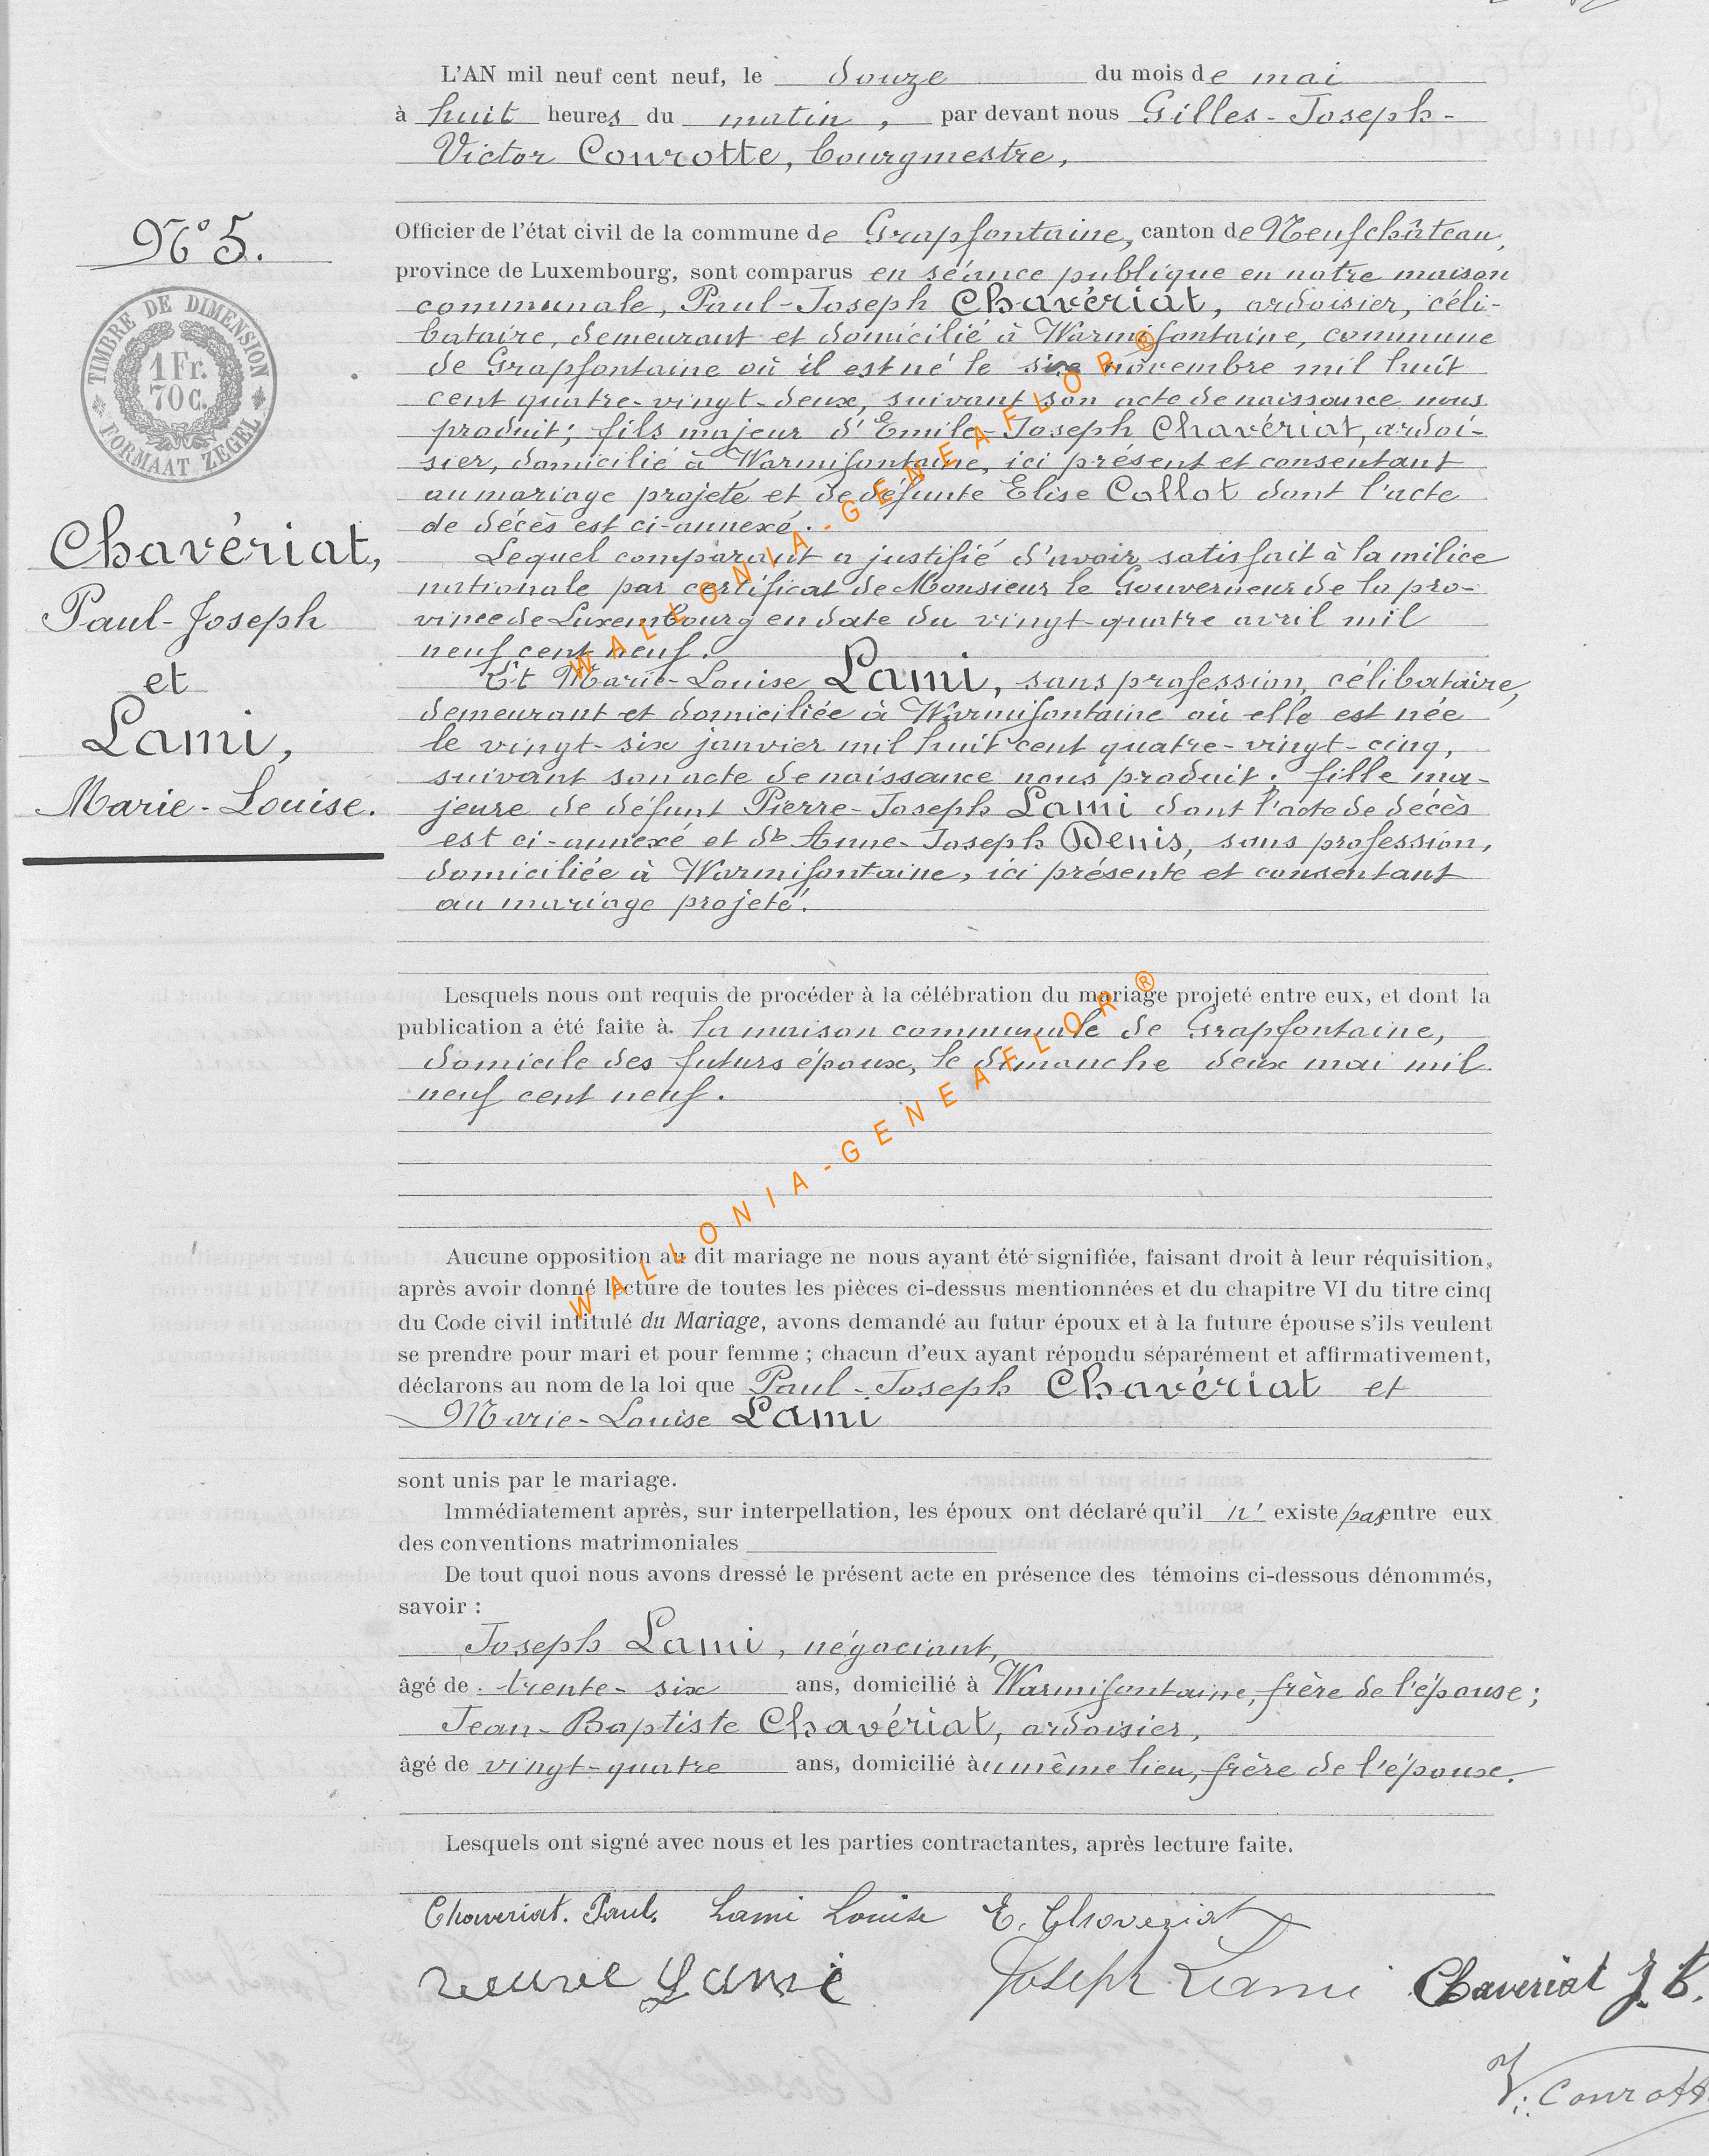 L'AN mil neuf cent neuf, le douze du mois de mai
à huit heures du matin, par devant nous Gilles-Joseph-
Victor Conrotte, bourgmestre,
N° 5.
Officier de l'état civil de la commune de Grapfontaine, canton de Neufchâteau,
province de Luxembourg, sont comparus en séance publique en notre maison
communale, Paul-Joseph Chavériat, ardoisier, céli-
bataire, demeurant et domicilié à Warmifontaine, commune
de Grapfontaine où il est né le six novembre mil huit
cent quatre-vingt-deux, suivant son acte de naissance nous
produit; fils majeur d'Emile-Joseph Chavériat, ardoi-
sier, domicilié à Warmifontaine, ici présent et consentant
au mariage projeté et de défunte Elise Collot dont l'acte
de décès est ci-annexé.
TIMBRE DE DIMENSION
1 Fr.
70 C.
FORMAAT ZEGEL
Chavériat,
Paul-Joseph
et
Lami,
Marie-Louise.
Lequel comparant a justifié d'avoir satisfait à la milice
nationale par certificat de Monsieur le Gouverneur de la pro-
vince de Luxembourg en date du vingt-quatre avril mil
neuf cent neuf.
Et Marie-Louise Lami, sans profession, célibataire,
demeurant et domiciliée à Warmifontaine où elle est née
le vingt-six janvier mil huit cent quatre-vingt-cinq,
suivant son acte de naissance nous produit; fille ma-
jeure de défunt Pierre-Joseph Lami dont l'acte de décès
est ci-annexé et de Anne-Joseph Denis, sans profession,
domiciliée à Warmifontaine, ici présente et consentant
au mariage projeté.
WALLONIA-GENEAFLOR®
Lesquels nous ont requis de procéder à la célébration du mariage projeté entre eux, et dont la
publication a été faite à la maison communale de Grapfontaine,
domicile des futurs époux, le dimanche deux mai mil
neuf cent neuf.
WALLONIA-GENEAFLOR®
Aucune opposition au dit mariage ne nous ayant été signifiée, faisant droit à leur réquisition,
après avoir donné lecture de toutes les pièces ci-dessus mentionnées et du chapitre VI du titre cinq
du Code civil intitulé du Mariage, avons demandé au futur époux et à la future épouse s'ils veulent
se prendre pour mari et pour femme ; chacun d'eux ayant répondu séparément et affirmativement,
déclarons au nom de la loi que Paul-Joseph Chavériat et
Marie-Louise Lami
sont unis par le mariage.
Immédiatement après, sur interpellation, les époux ont déclaré qu'il n' existe pas entre eux
des conventions matrimoniales
De tout quoi nous avons dressé le présent acte en présence des témoins ci-dessous dénommés,
savoir :
Joseph Lami, négociant,
âgé de trente-six ans, domicilié à Warmifontaine, frère de l'épouse;
Jean-Baptiste Chavériat, ardoisier,
âgé de vingt-quatre ans, domicilié au même lieu, frère de l'époux.
Lesquels ont signé avec nous et les parties contractantes, après lecture faite.
Chaveriat. Paul. Lami Louise E. Chaveriat
veuve Lami Joseph Lami Chaveriat J. B.
V. Conrotte